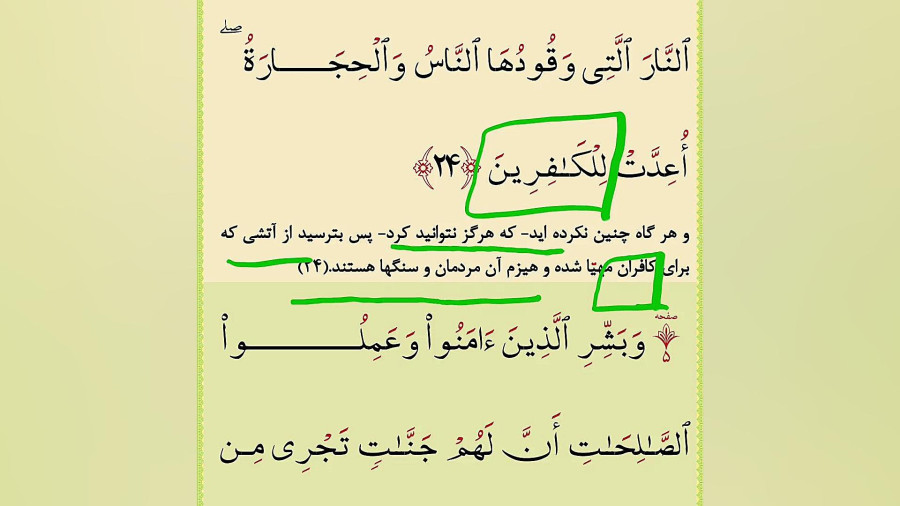 صلے
ٱلنَّارَ ٱلَّتِی وَقُودُهَا ٱلنَّاسُ وَٱلْحِجَـــارَةُ
أُعِدَّتْ لِلْكَـٰفِرِينَ ﴿۲۴﴾
و هر گاه چنین نکرده اید- که هرگز نتوانید کرد- پس بترسید از آتشی که
برای کافران مهیّا شده و هیزم آن مردمان و سنگها هستند.(۲۴)
صفحه
۵
وَبَشِّرِ ٱلَّذِينَ ءَامَنُواْ وَعَمِلُـــــواْ
ٱلصَّـٰلِحَـٰتِ أَنَّ لَهُمْ جَنَّـٰتٍ تَجْرِى مِـن